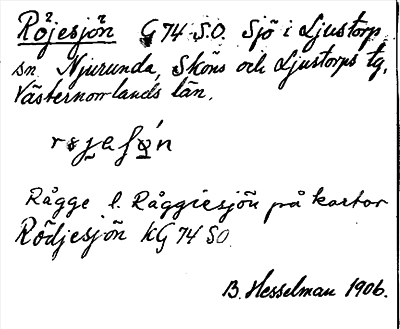 Röjesjön G 74 S.O. Sjö i Ljustorp
sn Njurunda, Sköns och Ljustorps tg,
Västernorrlands län.
Rågge l. Råggiesjön på kartor
Rödjesjön KG 74 SO.
B. Hesselman 1906.